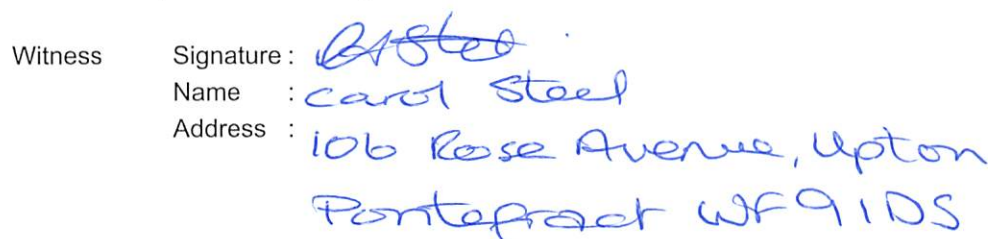 Witness Signature :
Name : Carol Steel
Address : 106 Rose Avenue, Upton
Pontefract WF9 1DS